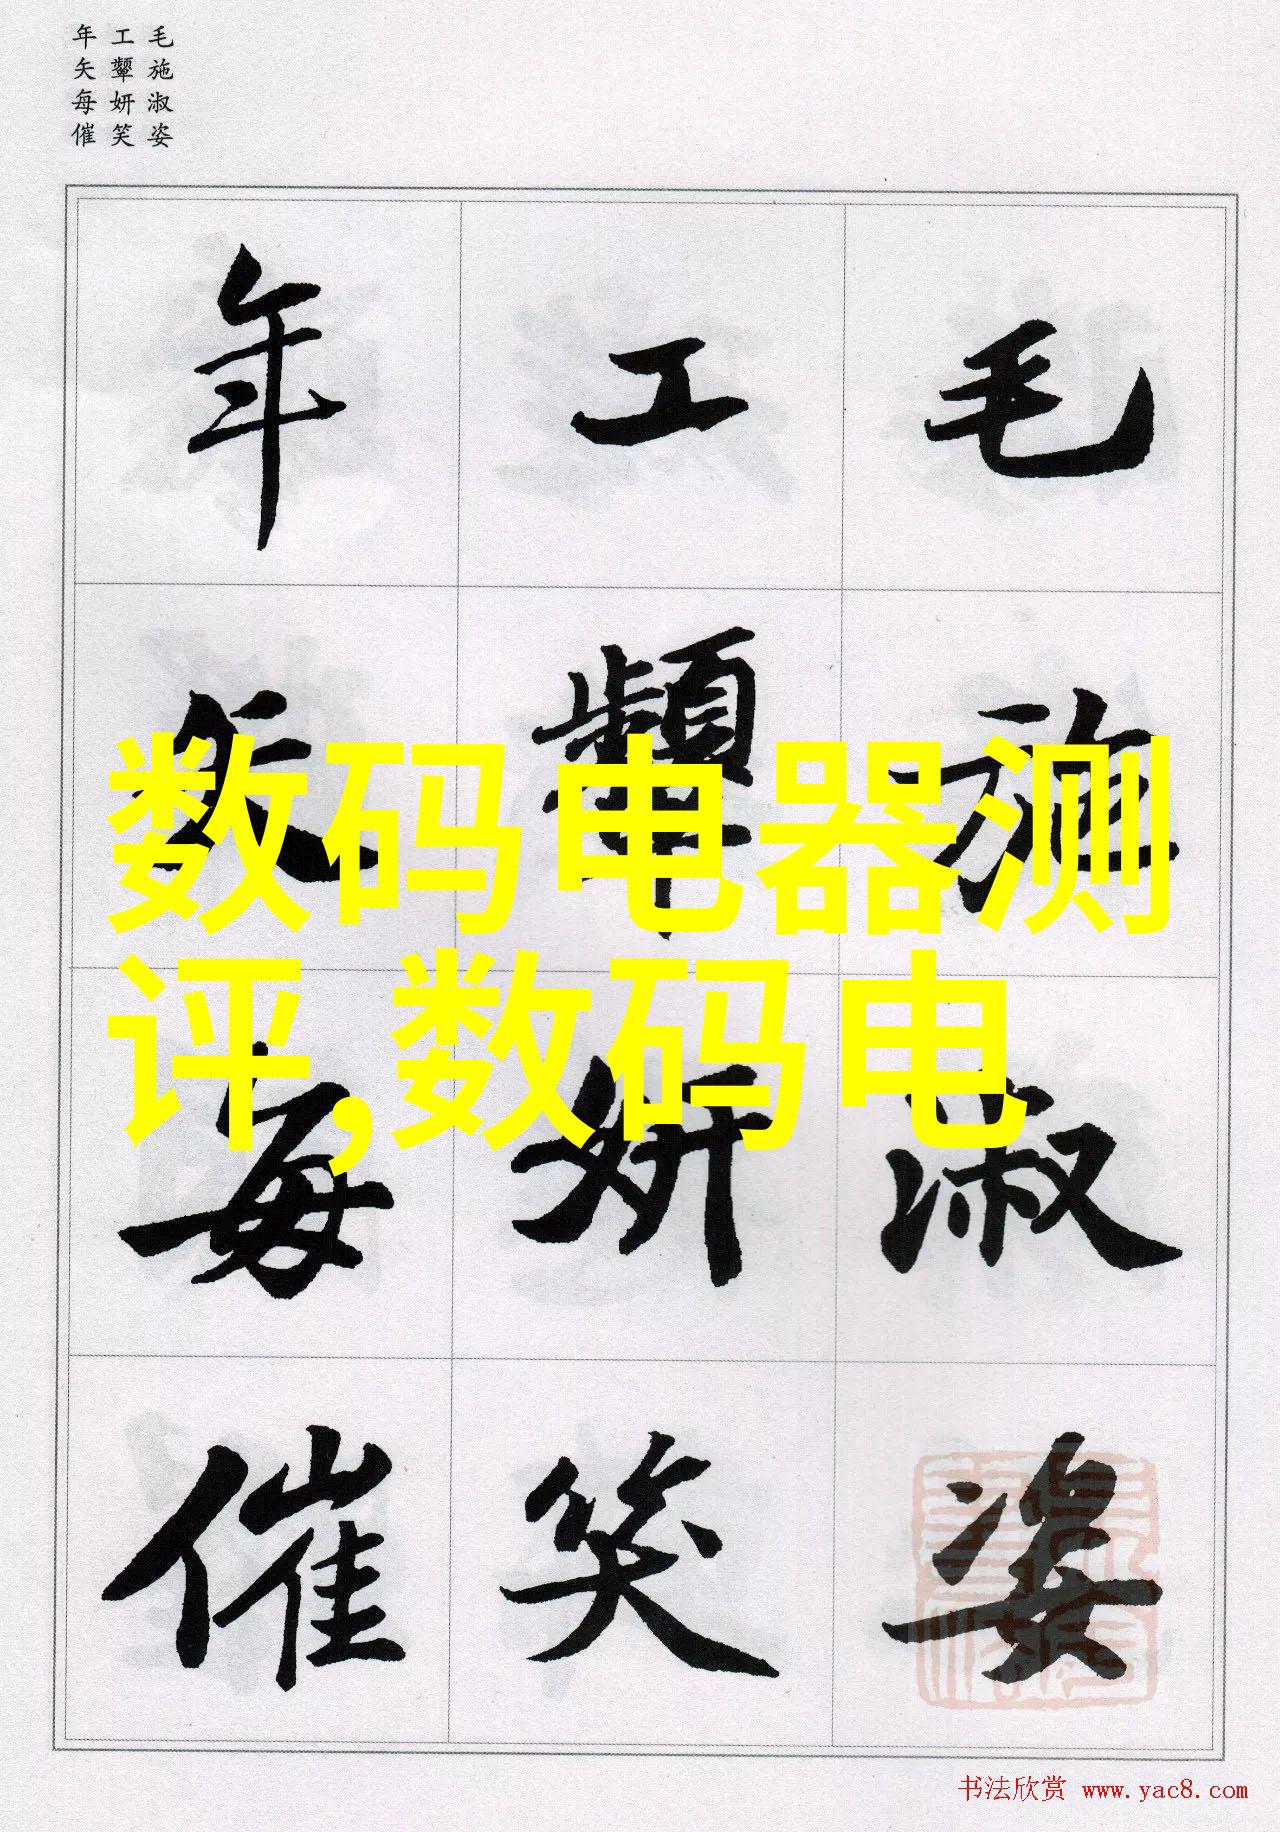 毛施淑姿
工颦妍笑
年矢每催
毛施淑姿
工颦妍笑
年矢每催
数码电器测
评,数码电
书法欣赏 www.yac8.com